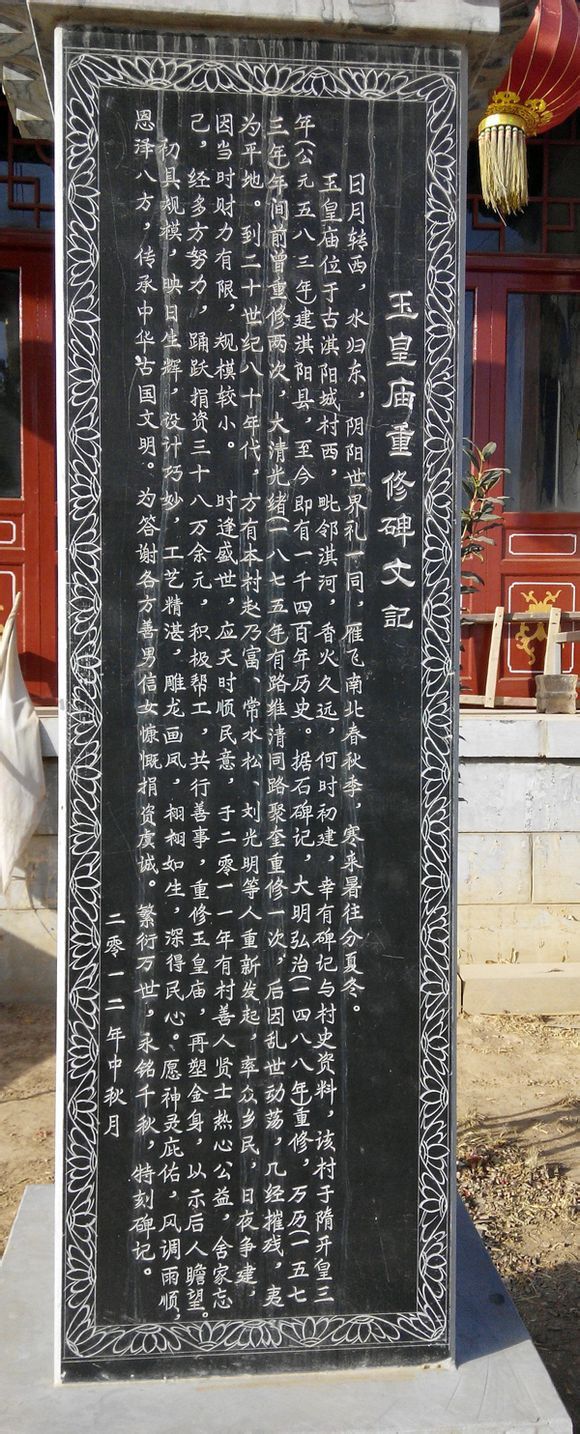 玉皇庙重修碑文記
日月转西，水归东，阴阳世界礼一同，雁飞南北春秋季，寒来暑往分夏冬。
玉皇庙位于古淇阳城村西，毗邻淇河，香火久远，何时初建，幸有碑记与村史资料，该村于隋开皇三
年(公元五八三年)建淇阳县，至今即有一千四百年历史。据石碑记，大明弘治(一四八八年)重修，万历(一五七
三年)年间前曾重修两次，大清光绪(一八七五年)有路维清同路聚奎重修一次，后因乱世动荡，几经摧残，夷
为平地。到二十世纪八十年代，方有本村赵乃富、常水松、刘光明等人重新发起，率众乡民，日夜争建，
因当时财力有限，规模较小。 时逢盛世，应天时顺民意，于二零一一年有村善人贤士热心公益，舍家忘
己，经多方努力，踊跃捐资三十八万余元，积极帮工，共行善事，重修玉皇庙，再塑金身，以示后人瞻望。
初具规模，映日生辉，设计巧妙，工艺精湛，雕龙画凤，栩栩如生，深得民心。愿神灵庇佑，风调雨顺，
恩泽八方，传承中华古国文明。为答谢各方善男信女慷慨捐资虔诚。繁衍万世，永铭千秋，特刻碑记。
二零一二年中秋月